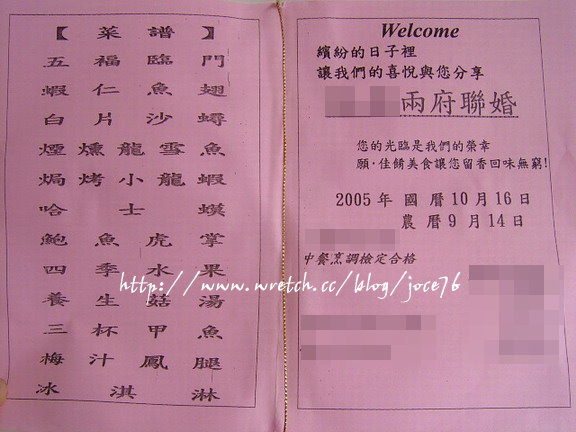 【 菜 譜 】
五 福 臨 門
蝦 仁 魚 翅
白 片 沙 蟳
煙 燻 龍 雪 魚
焗 烤 小 龍 蝦
哈 士 蟆
鮑 魚 虎 掌
四 季 水 果
養 生 菇 湯
三 杯 甲 魚
梅 汁 鳳 腿
冰 淇 淋
Welcome
繽紛的日子裡
讓我們的喜悅與您分享
兩府聯婚
您的光臨是我們的榮幸
願‧佳餚美食讓您留香回味無窮!
2005 年 國 曆 10 月 16 日
農 曆 9 月 14 日
中餐烹調檢定合格
http://www.wretch.cc/blog/joce76